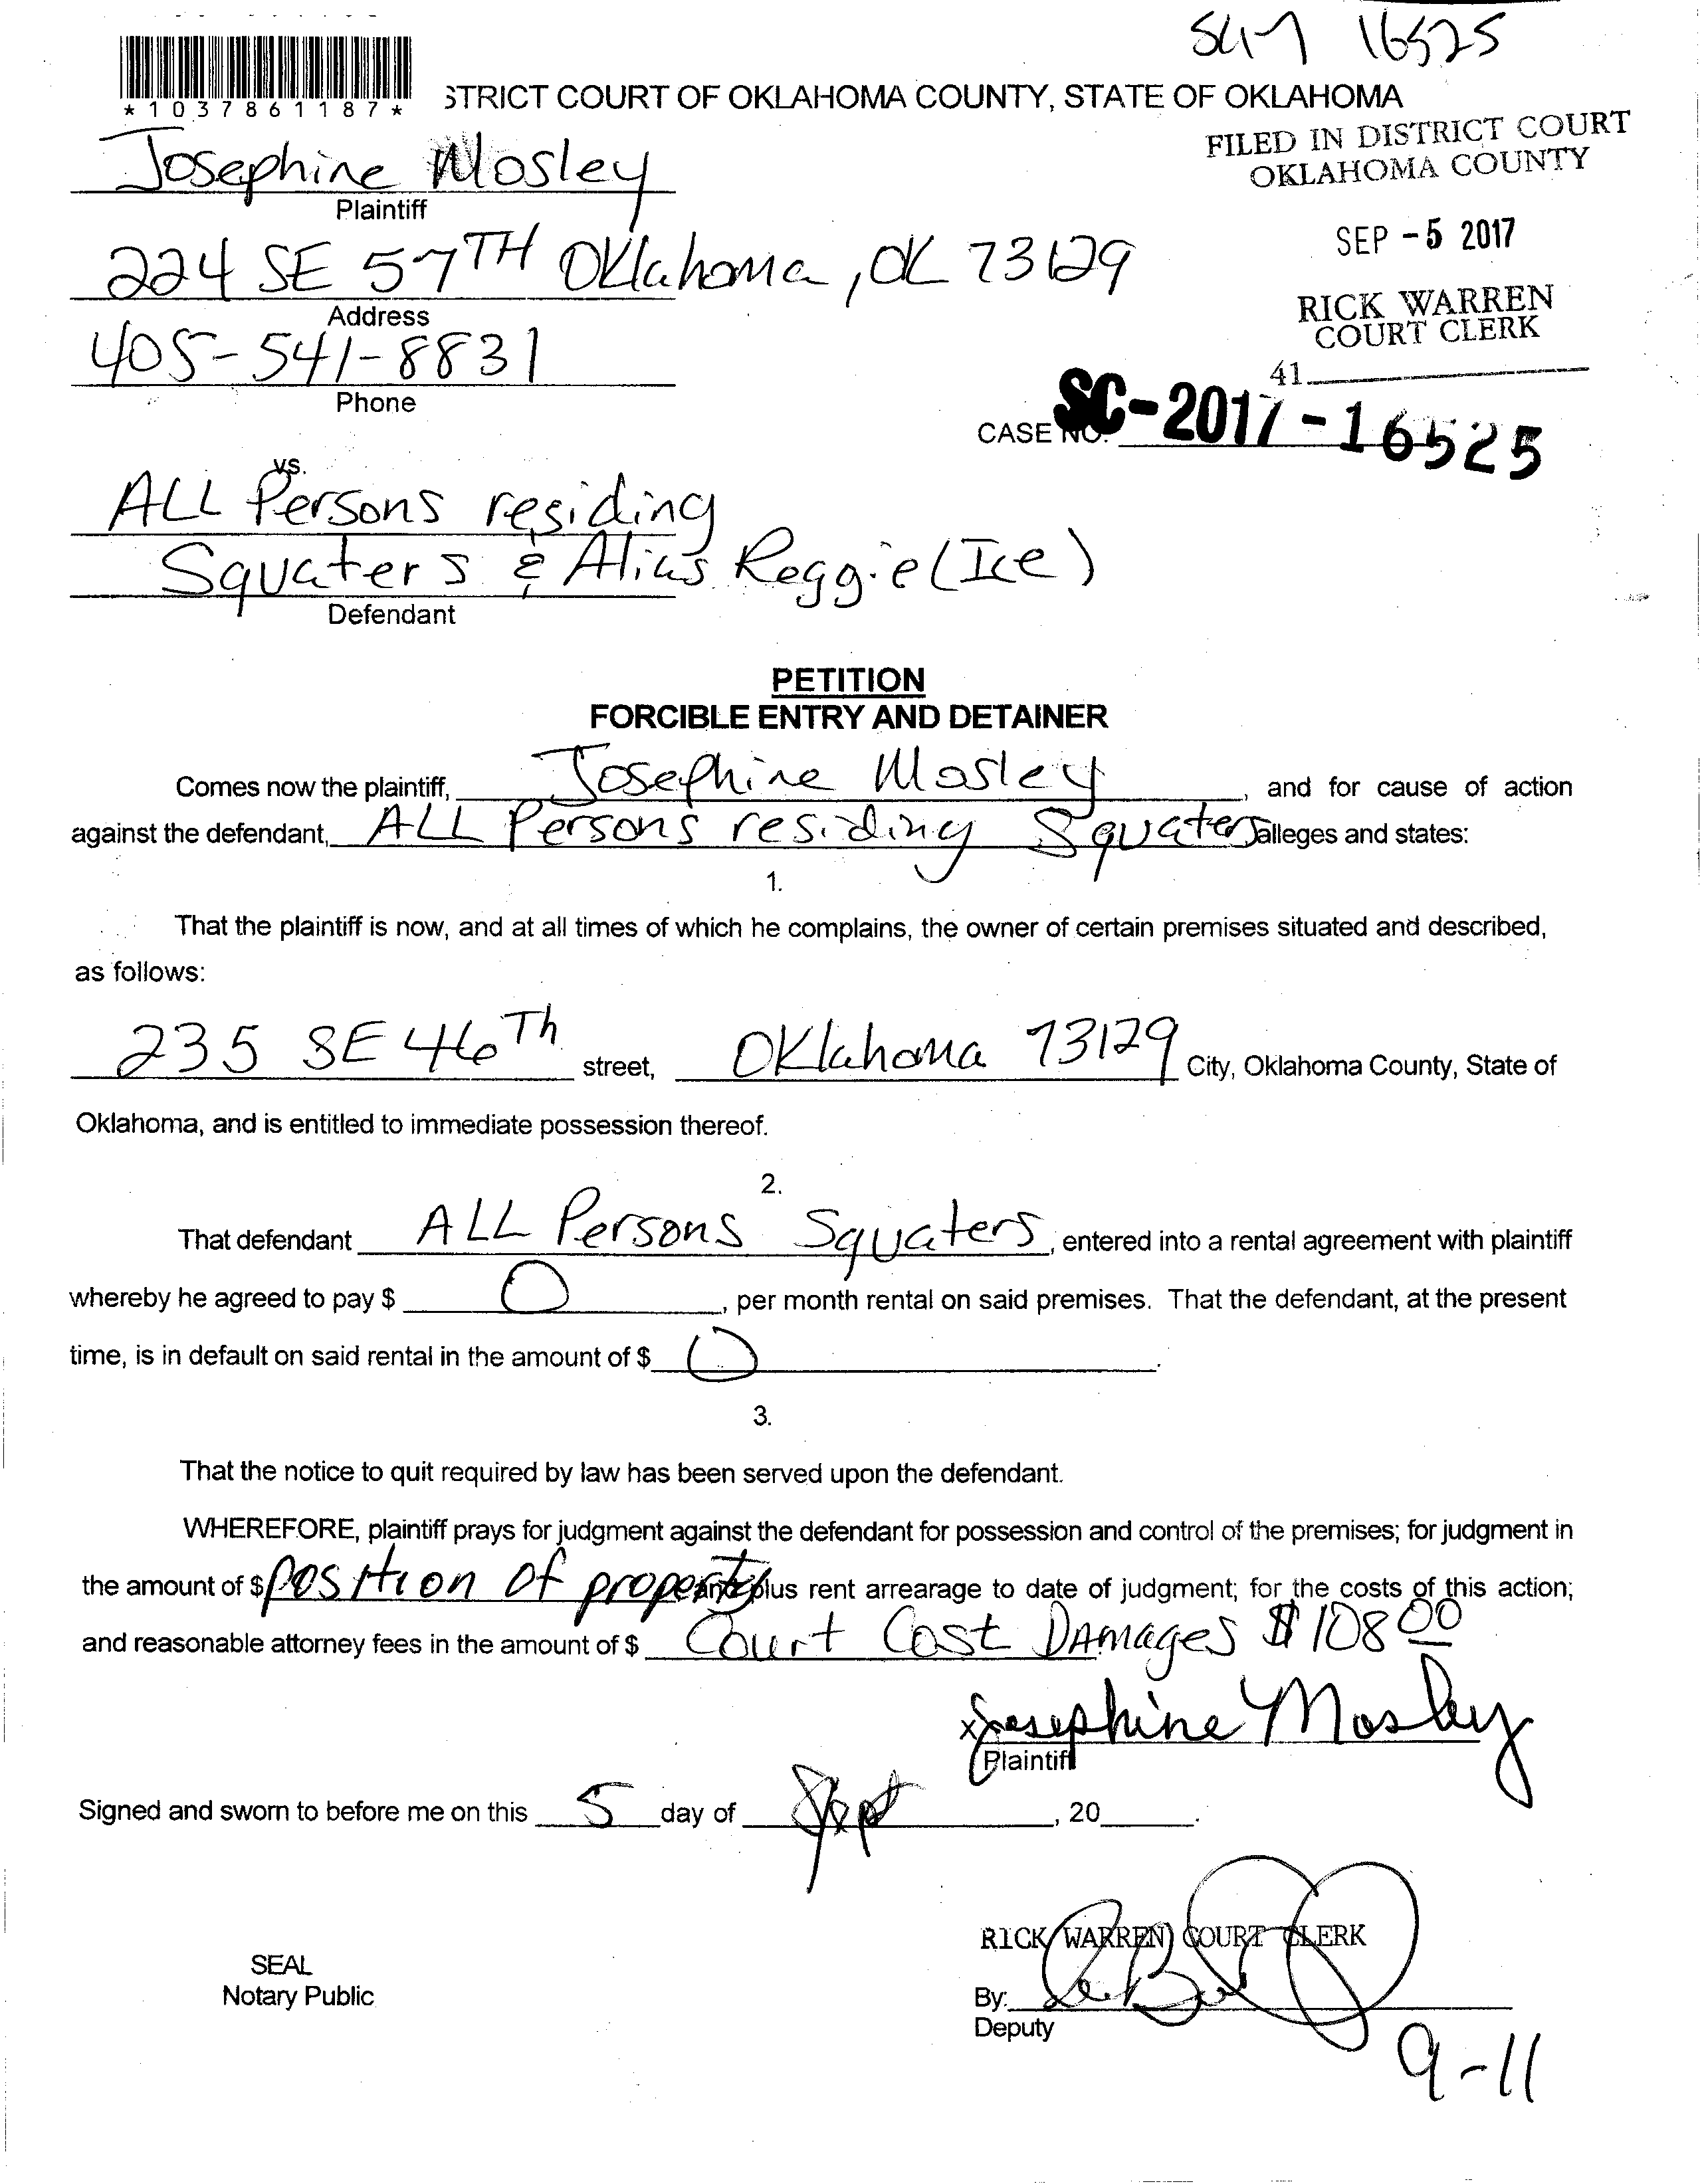 SC17 16525
*1037861187*
STRICT COURT OF OKLAHOMA COUNTY, STATE OF OKLAHOMA
FILED IN DISTRICT COURT
OKLAHOMA COUNTY
Josephine Mosley
Plaintiff
SEP -5 2017
224 SE 57TH Oklahoma, OK 73129
Address
RICK WARREN
COURT CLERK
405-541-8831
Phone
41
CASE NO. SC-2017-16525
vs.
ALL Persons residing
Squaters & Alias Reggie (Ice)
Defendant
PETITION
FORCIBLE ENTRY AND DETAINER
Comes now the plaintiff, Josephine Mosley, and for cause of action
against the defendant, ALL Persons residing Squaters alleges and states:
1.
That the plaintiff is now, and at all times of which he complains, the owner of certain premises situated and described,
as follows:
235 SE 46Th street, Oklahoma 73129 City, Oklahoma County, State of
Oklahoma, and is entitled to immediate possession thereof.
2.
That defendant ALL Persons Squaters, entered into a rental agreement with plaintiff
whereby he agreed to pay $ 0, per month rental on said premises. That the defendant, at the present
time, is in default on said rental in the amount of $ 0.
3.
That the notice to quit required by law has been served upon the defendant.
WHEREFORE, plaintiff prays for judgment against the defendant for possession and control of the premises; for judgment in
the amount of $ position of property and plus rent arrearage to date of judgment; for the costs of this action;
and reasonable attorney fees in the amount of $ Court Cost Damages $108 00
x Josephine Mosley
Plaintiff
Signed and sworn to before me on this 5 day of Sept, 20 .
RICK WARREN COURT CLERK
SEAL
Notary Public
By:
Deputy
9-11